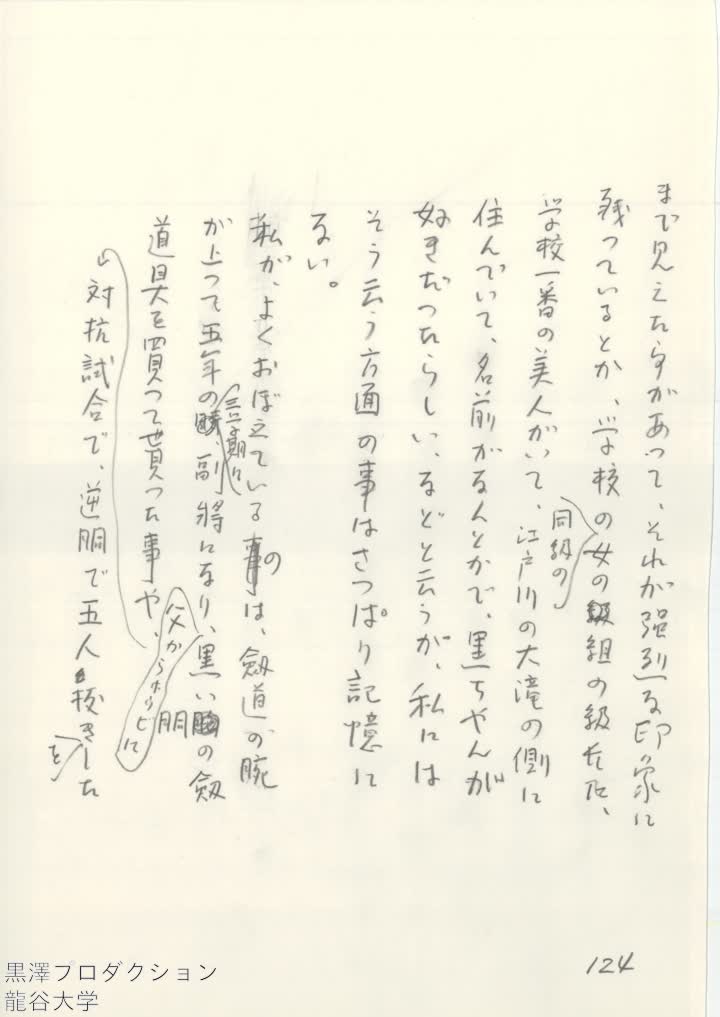 まで見えた事があって、それが强烈な印象に
残っているとか、学校の女の組の級長だ、
同級の
学校一番の美人がいて、江戸川の大滝の側に
住んでいて、名前がなんとかで、黒ちやんが
好きだつたらしい、などと云うが、私には
そう云う方面の事はさっぱり記憶に
ない。
私が、よくおぼえている
の
は、劔道の腕
が上つて五年の
三学期に
副將になり、黒い
胴
の劔
道具を買つて貰った事や、
父からホウビに
対抗試合で、逆胴で五人
を
抜きした
124
黒澤プロダクション
龍谷大学